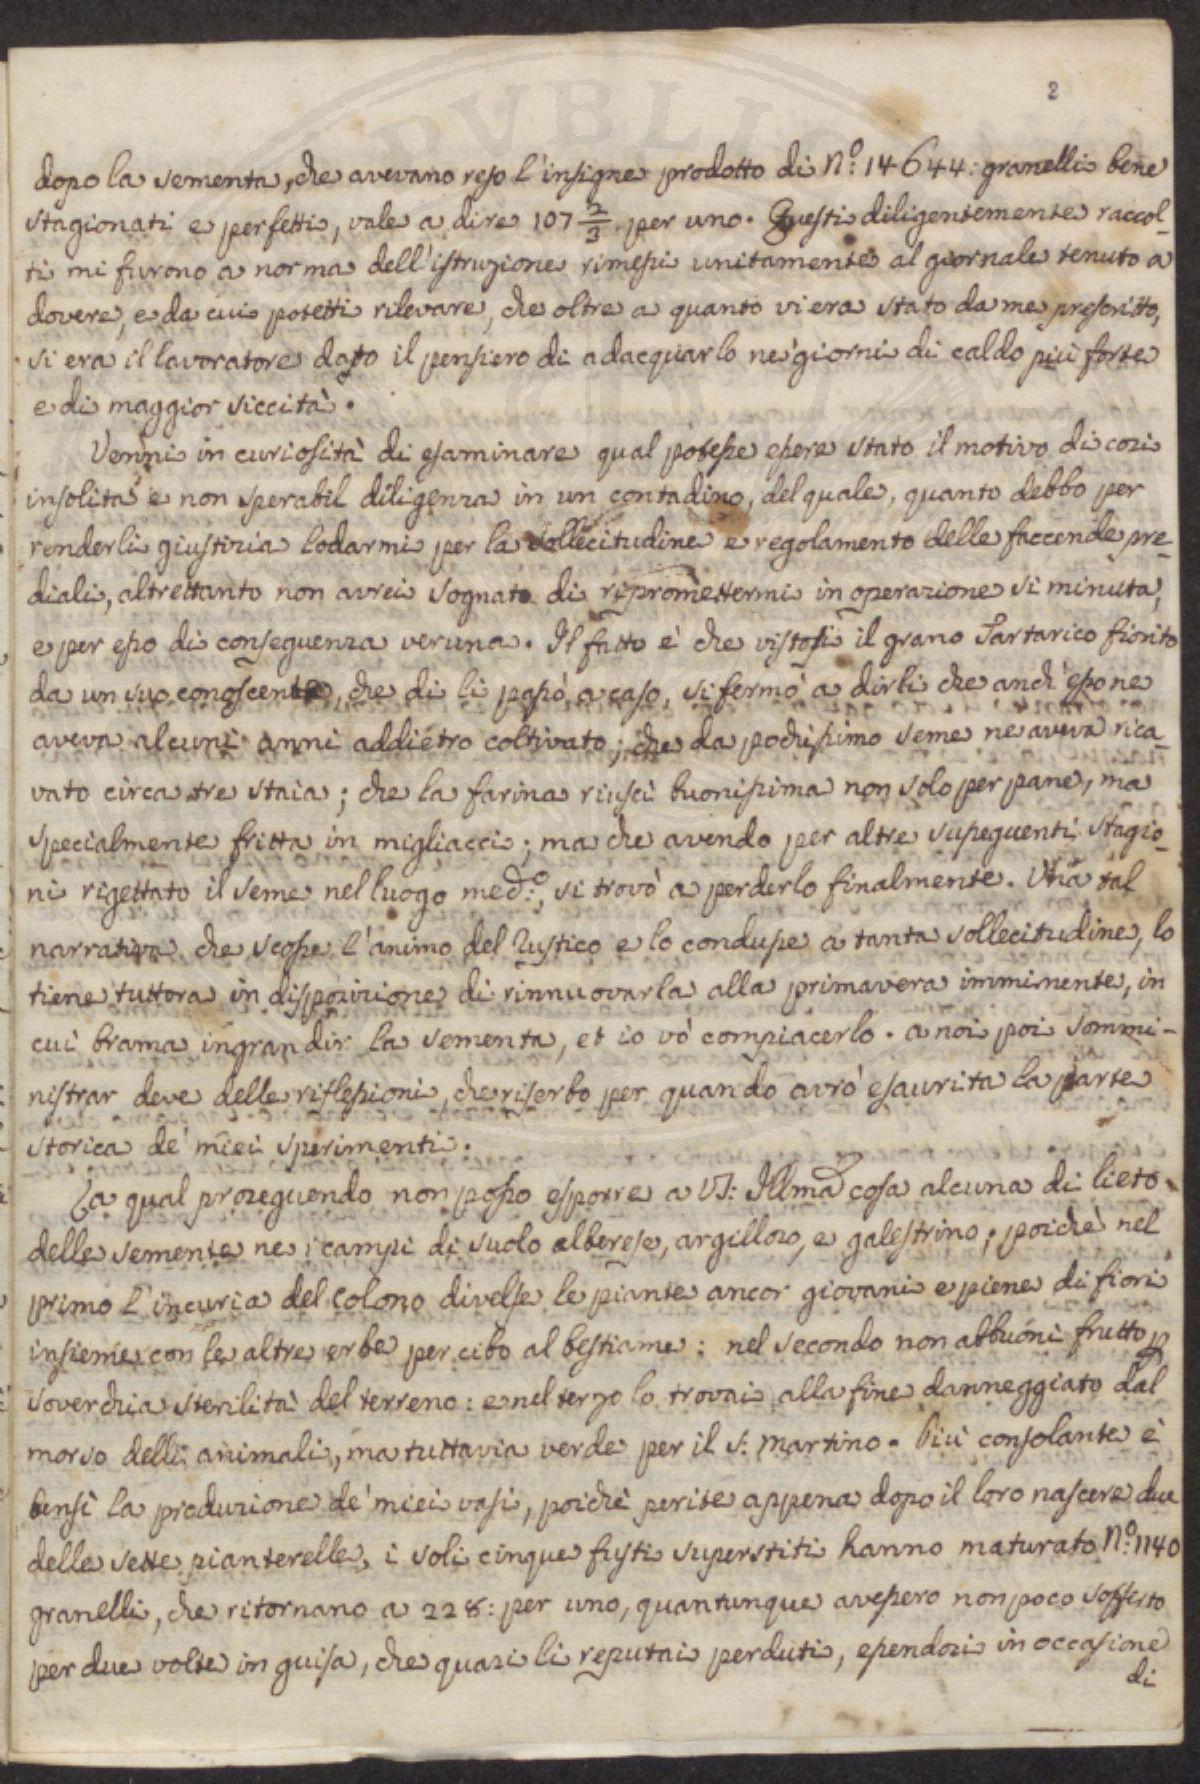 PVBLIC
2
dopo la sementa, che avevano reso l'insigne prodotto di N.º 14644: granelli bene
stagionati e perfetti, vale a dire 107 2/3 per uno. Questi diligentemente raccol-
ti mi furono a norma dell'istruzione rimessi unitamente al giornale tenuto a
dovere, e da cui potetti rilevare, che oltre a quanto vi era stato da me prescritto,
si era il lavoratore dato il pensiero di adacquarlo ne' giorni di caldo più forte
e di maggior siccità.
Venni in curiosità di esaminare qual potesse essere stato il motivo di così
insolita e non sperabil diligenza in un contadino, del quale, quanto debbo per
renderli giustizia lodarmi per la sollecitudine e regolamento delle faccende pre-
diali, altrettanto non avrei sognato di ripromettermi in operazione si minuta,
e per esso di conseguenza veruna. Il fatto è che vistosi il grano Tartarico fiorito
da un suo conoscente, che di li passò a caso, si fermò a dirli che anch'esso ne
aveva alcuni anni addietro coltivato; che da pochissimo seme ne aveva rica-
vato circa tre staia; che la farina riuscì buonissima non solo per pane, ma
specialmente fritta in migliacci; ma che avendo per altre susseguenti stagio-
ni rigettato il seme nel luogo med.º, si trovò a perderlo finalmente. Una tal
narrativa che scosse l'animo del Rustico e lo condusse a tanta sollecitudine, lo
tiene tuttora in disposizione di rinnuovarla alla primavera imminente, in
cui brama ingrandir la sementa, et io vò compiacerlo. a noi poi sommi-
nistrar deve delle riflessioni, che riserbo per quando avrò esaurita la parte
storica de' miei sperimenti.
La qual proseguendo non posso esporre a VS: Illma cosa alcuna di lieto
delle semente ne i campi di suolo alberese, argilloso, e galestrino; poichè nel
primo l'incuria del Colono divelse le piante ancor giovani e piene di fiori
insieme con le altre erbe per cibo al bestiame: nel secondo non abbuonì frutto p
soverchia sterilità del terreno: e nel terzo lo trovai alla fine danneggiato dal
morso delli animali, ma tuttavia verde per il S: Martino. Più consolante è
bensì la produzione de' miei vasi, poichè perite appena dopo il loro nascere due
delle sette pianterelle, i soli cinque fusti superstiti hanno maturato N.º 1140
granelli, che ritornano a 228: per uno, quantunque avessero non poco sofferto
per due volte in guisa, che quasi li reputai perduti, essendosi in occasione
di